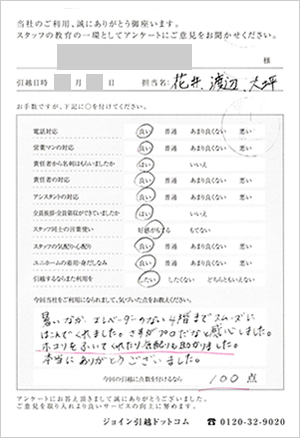 当社のご利用、誠にありがとう御座います。
スタッフの教育の一環としてアンケートにご意見をお聞かせください。
様
引越日時 年 月 日 担当名 花井、渡辺、大坪
お手数ですが、下記に○を付けてください。
電話対応 良い 普通 あまり良くない 悪い
営業マンの対応 良い 普通 あまり良くない 悪い
責任者から名刺はもらいましたか はい いいえ
責任者の対応 良い 普通 あまり良くない 悪い
アシスタントの対応 良い 普通 あまり良くない 悪い
全員挨拶・全員帽取ができていましたか はい いいえ
スタッフ同士の言葉使い 好感がもてる もてない
スタッフの気配り心配り 良い 普通 あまり良くない 悪い
ユニホームの着用・身だしなみ 良い 普通 あまり良くない 悪い
引越するならまた利用を したい したくない どちらともいえない
今回当社をご利用になられまして、気づいた点をお教えください。
暑いなか、エレベーターのない4階までスムーズに
はこんでくれました。さすがプロだなと感心しました。
ホコリをふいてくれたり気配りも助かりました。
本当にありがとうございました。
今回の引越に点数を付けるなら 100点
アンケートにお答え頂きまして誠にありがとうございました。
ご意見を取り入れより良いサービスの向上に努めます。
ジョイン引越ドットコム ☎ 0120-32-9020